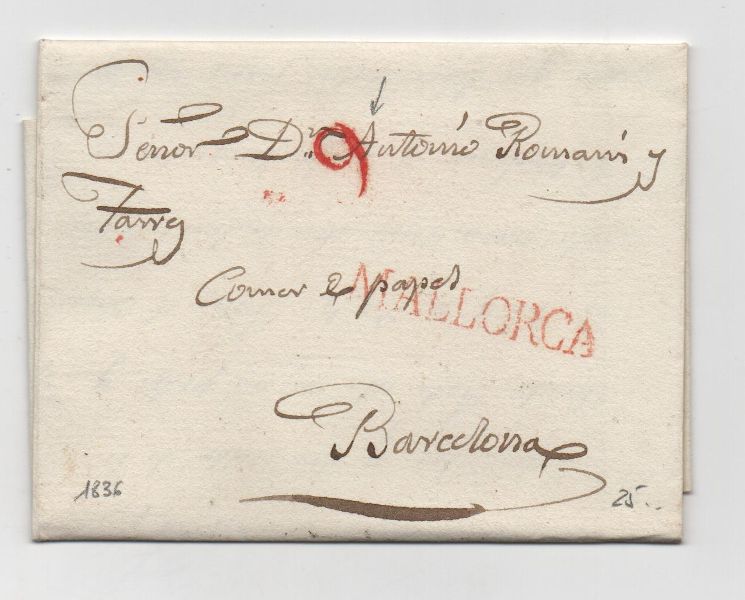 Señor Dn. Antonio Romaní y
Tarrés
9
Comer e papel
MALLORCA
Barcelona
1836
25..